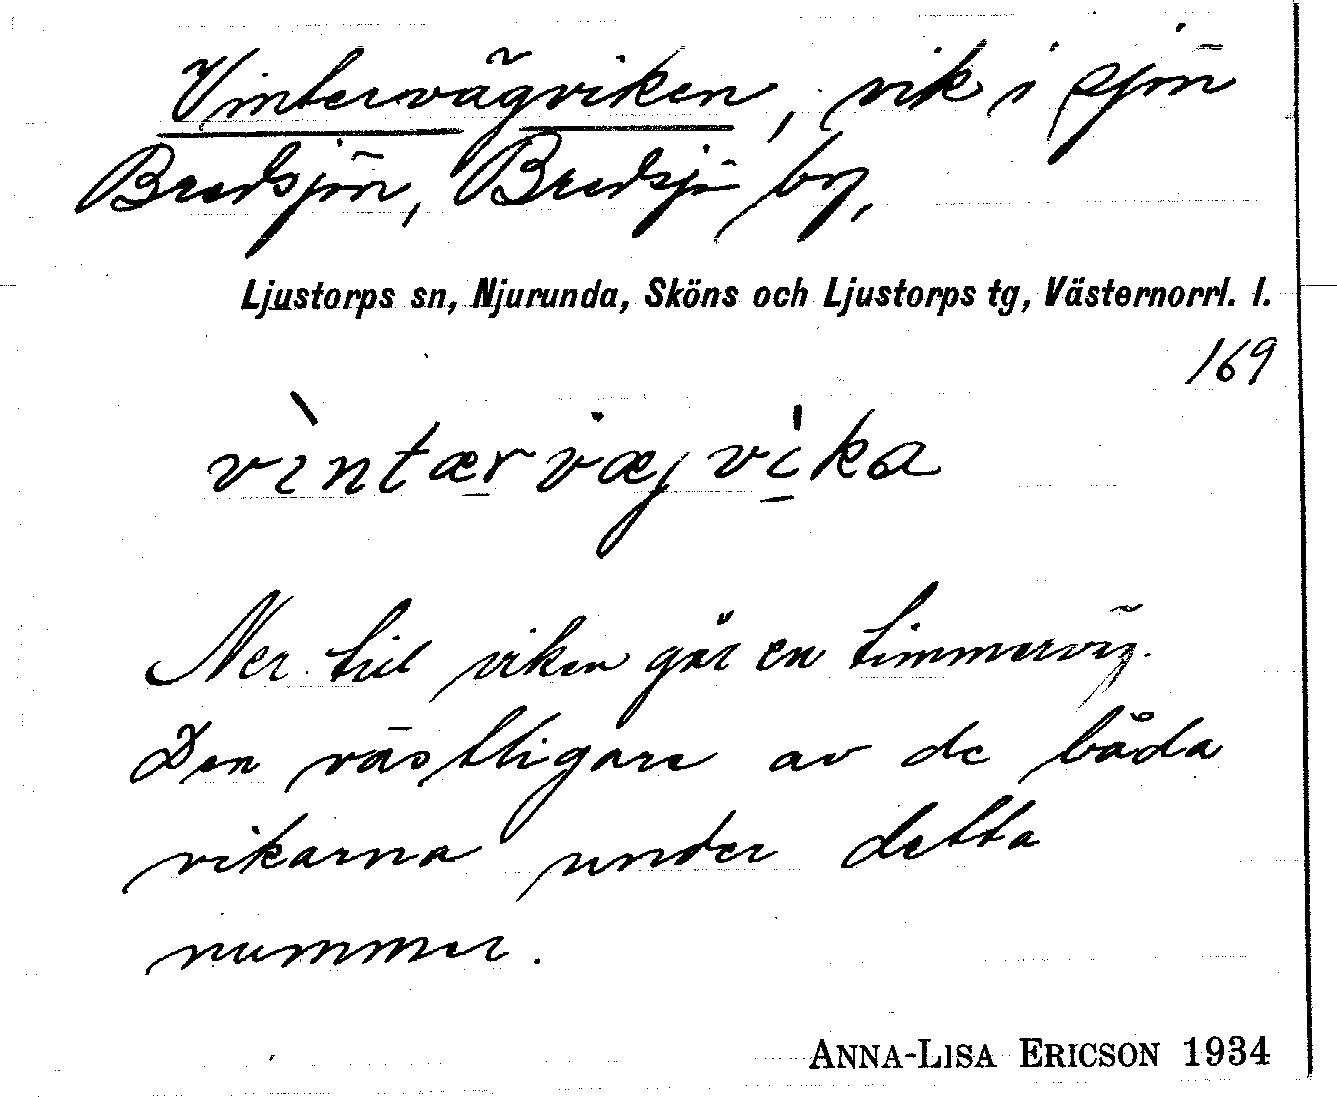 Vintervägviken, vik i sjön
Bredsjön, Bredsjö by,
Ljustorps sn, Njurunda, Sköns och Ljustorps tg, Västernorrl. l.
169
vìntærvæjvika
Ner till viken går en timmerväg.
Den västligare av de båda
vikarna under detta
nummer.
ANNA-LISA ERICSON 1934